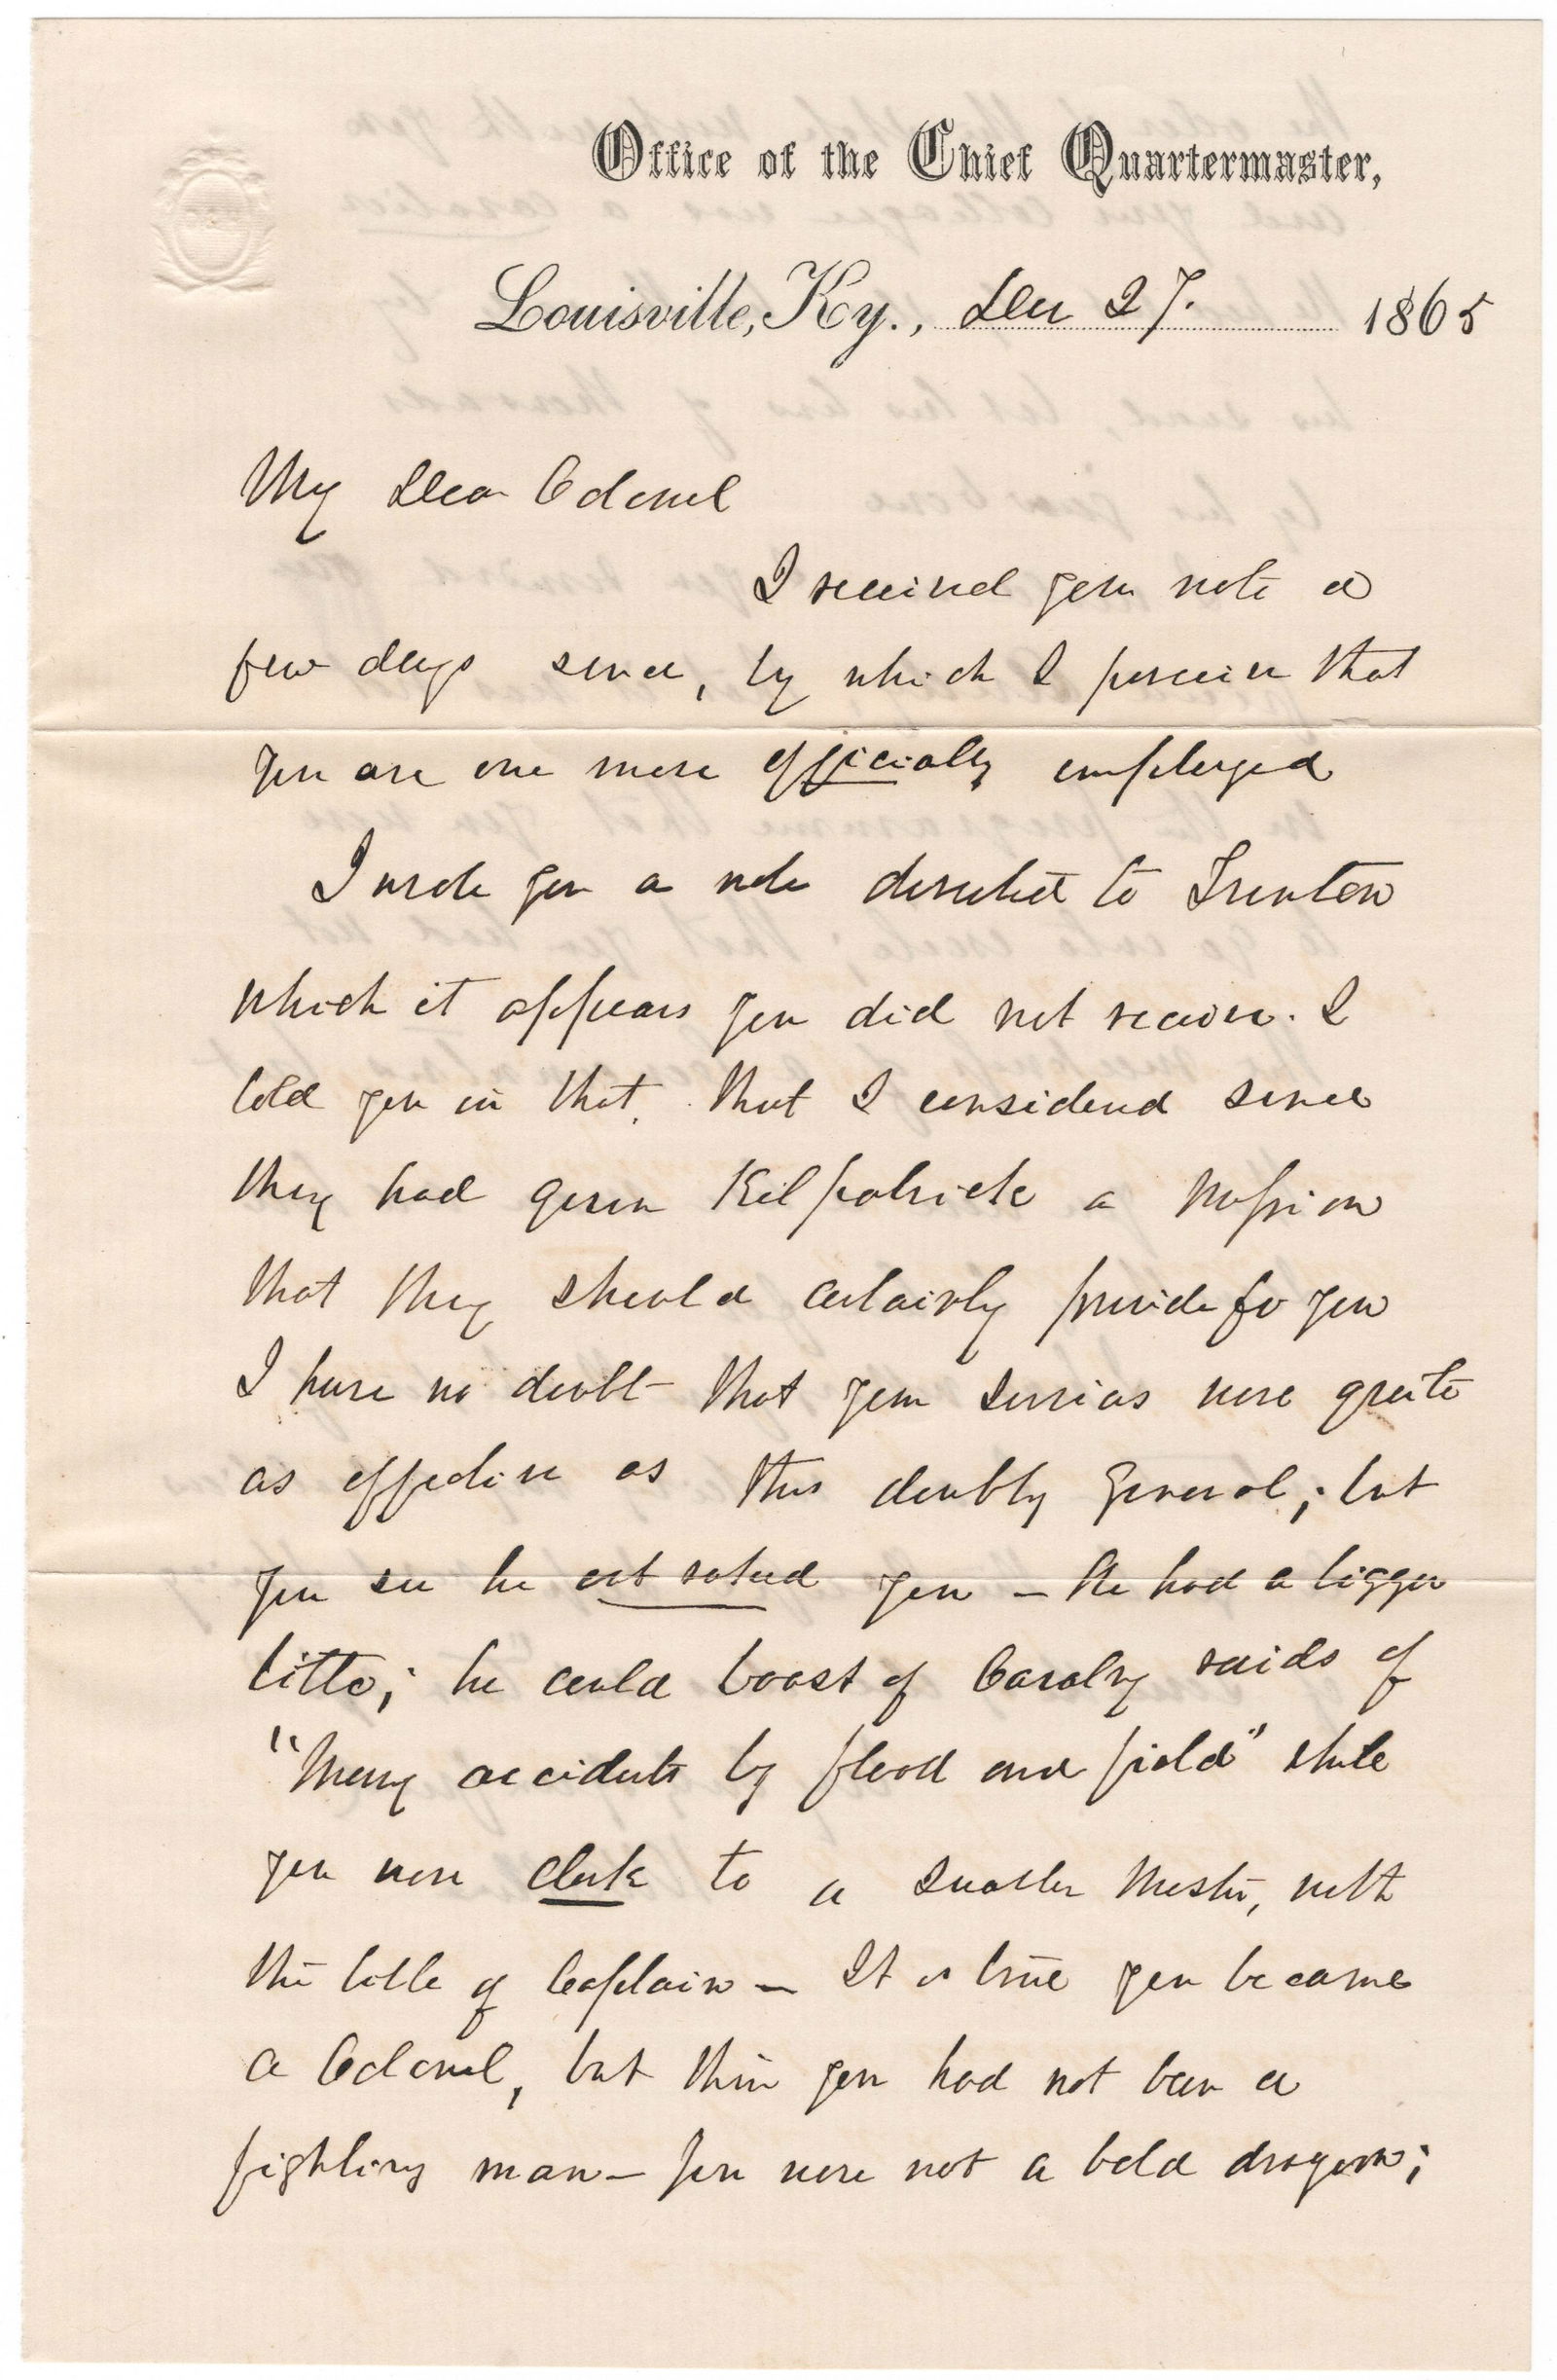 Office of the Chief Quartermaster,
Louisville, Ky., Dec 27. 1865
My Dear Colonel
I received your note a
few days since, by which I perceive that
you are once more officially employed
I wrote you a note directed to Trenton
which it appears you did not receive. I
told you in that, that I considered since
they had given Kilpatrick a Mission
that they should certainly provide for you
I have no doubt that your services were quite
as effective as this doubty General; but
you see he out ranked you – He had a bigger
title; he could boast of Cavalry raids of
"Many accidents by flood and field" while
you were clerk to a Muster, with
the title of Captain – It is true you became
a Colonel, but then you had not been a
fighting man – you were not a bold dragoon;